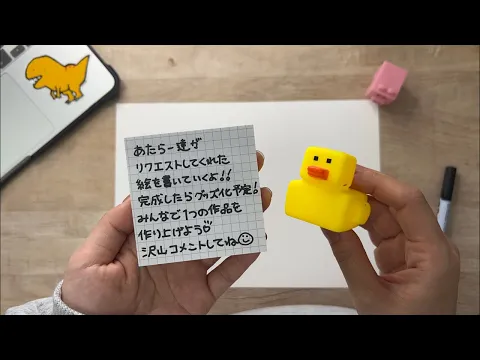 あたらー達が
リクエストしてくれた
絵を書いていくよ!!
完成したらグッズ化予定!
みんなで1つの作品を
作り上げよう♡
沢山コメントしてね☺